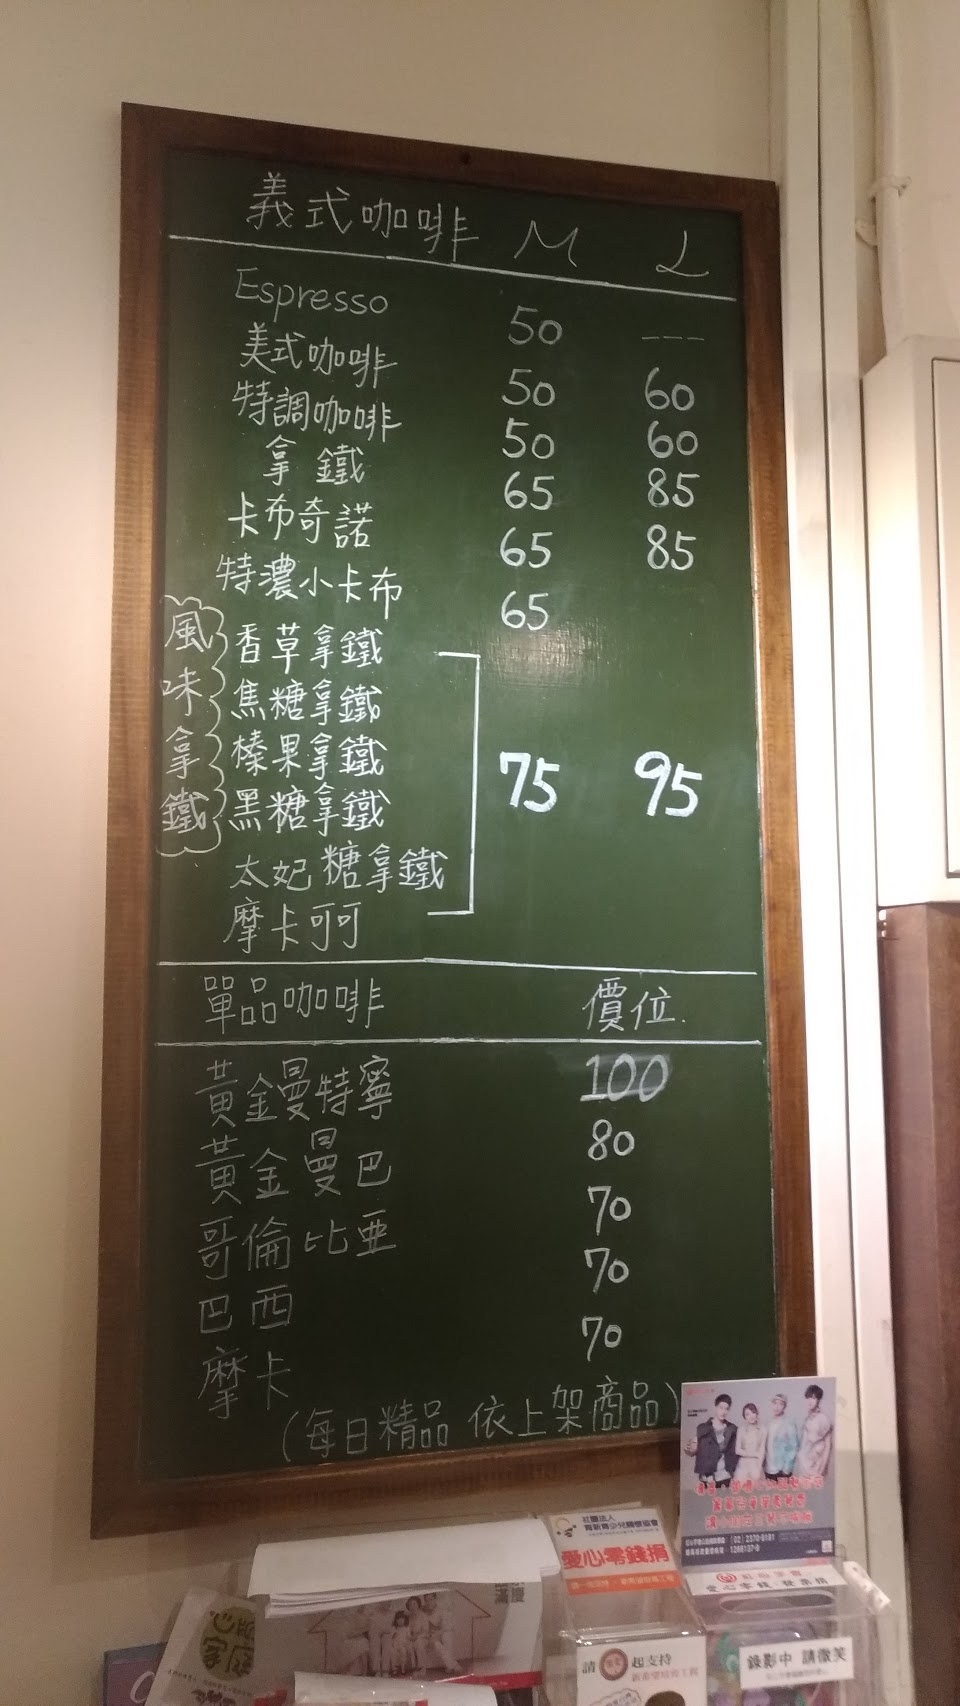 義式咖啡 M L
Espresso 50 ---
美式咖啡 50 60
特調咖啡 50 60
拿鐵 65 85
卡布奇諾 65 85
特濃小卡布 65
風味拿鐵
香草拿鐵
焦糖拿鐵
榛果拿鐵 75 95
黑糖拿鐵
太妃糖拿鐵
摩卡可可
單品咖啡 價位
黃金曼特寧 100
黃金曼巴 80
哥倫比亞 70
巴西 70
摩卡 70
(每日精品 依上架商品)
愛心零錢捐
愛心零錢·發票捐
請 起支持
錄影中 請微笑